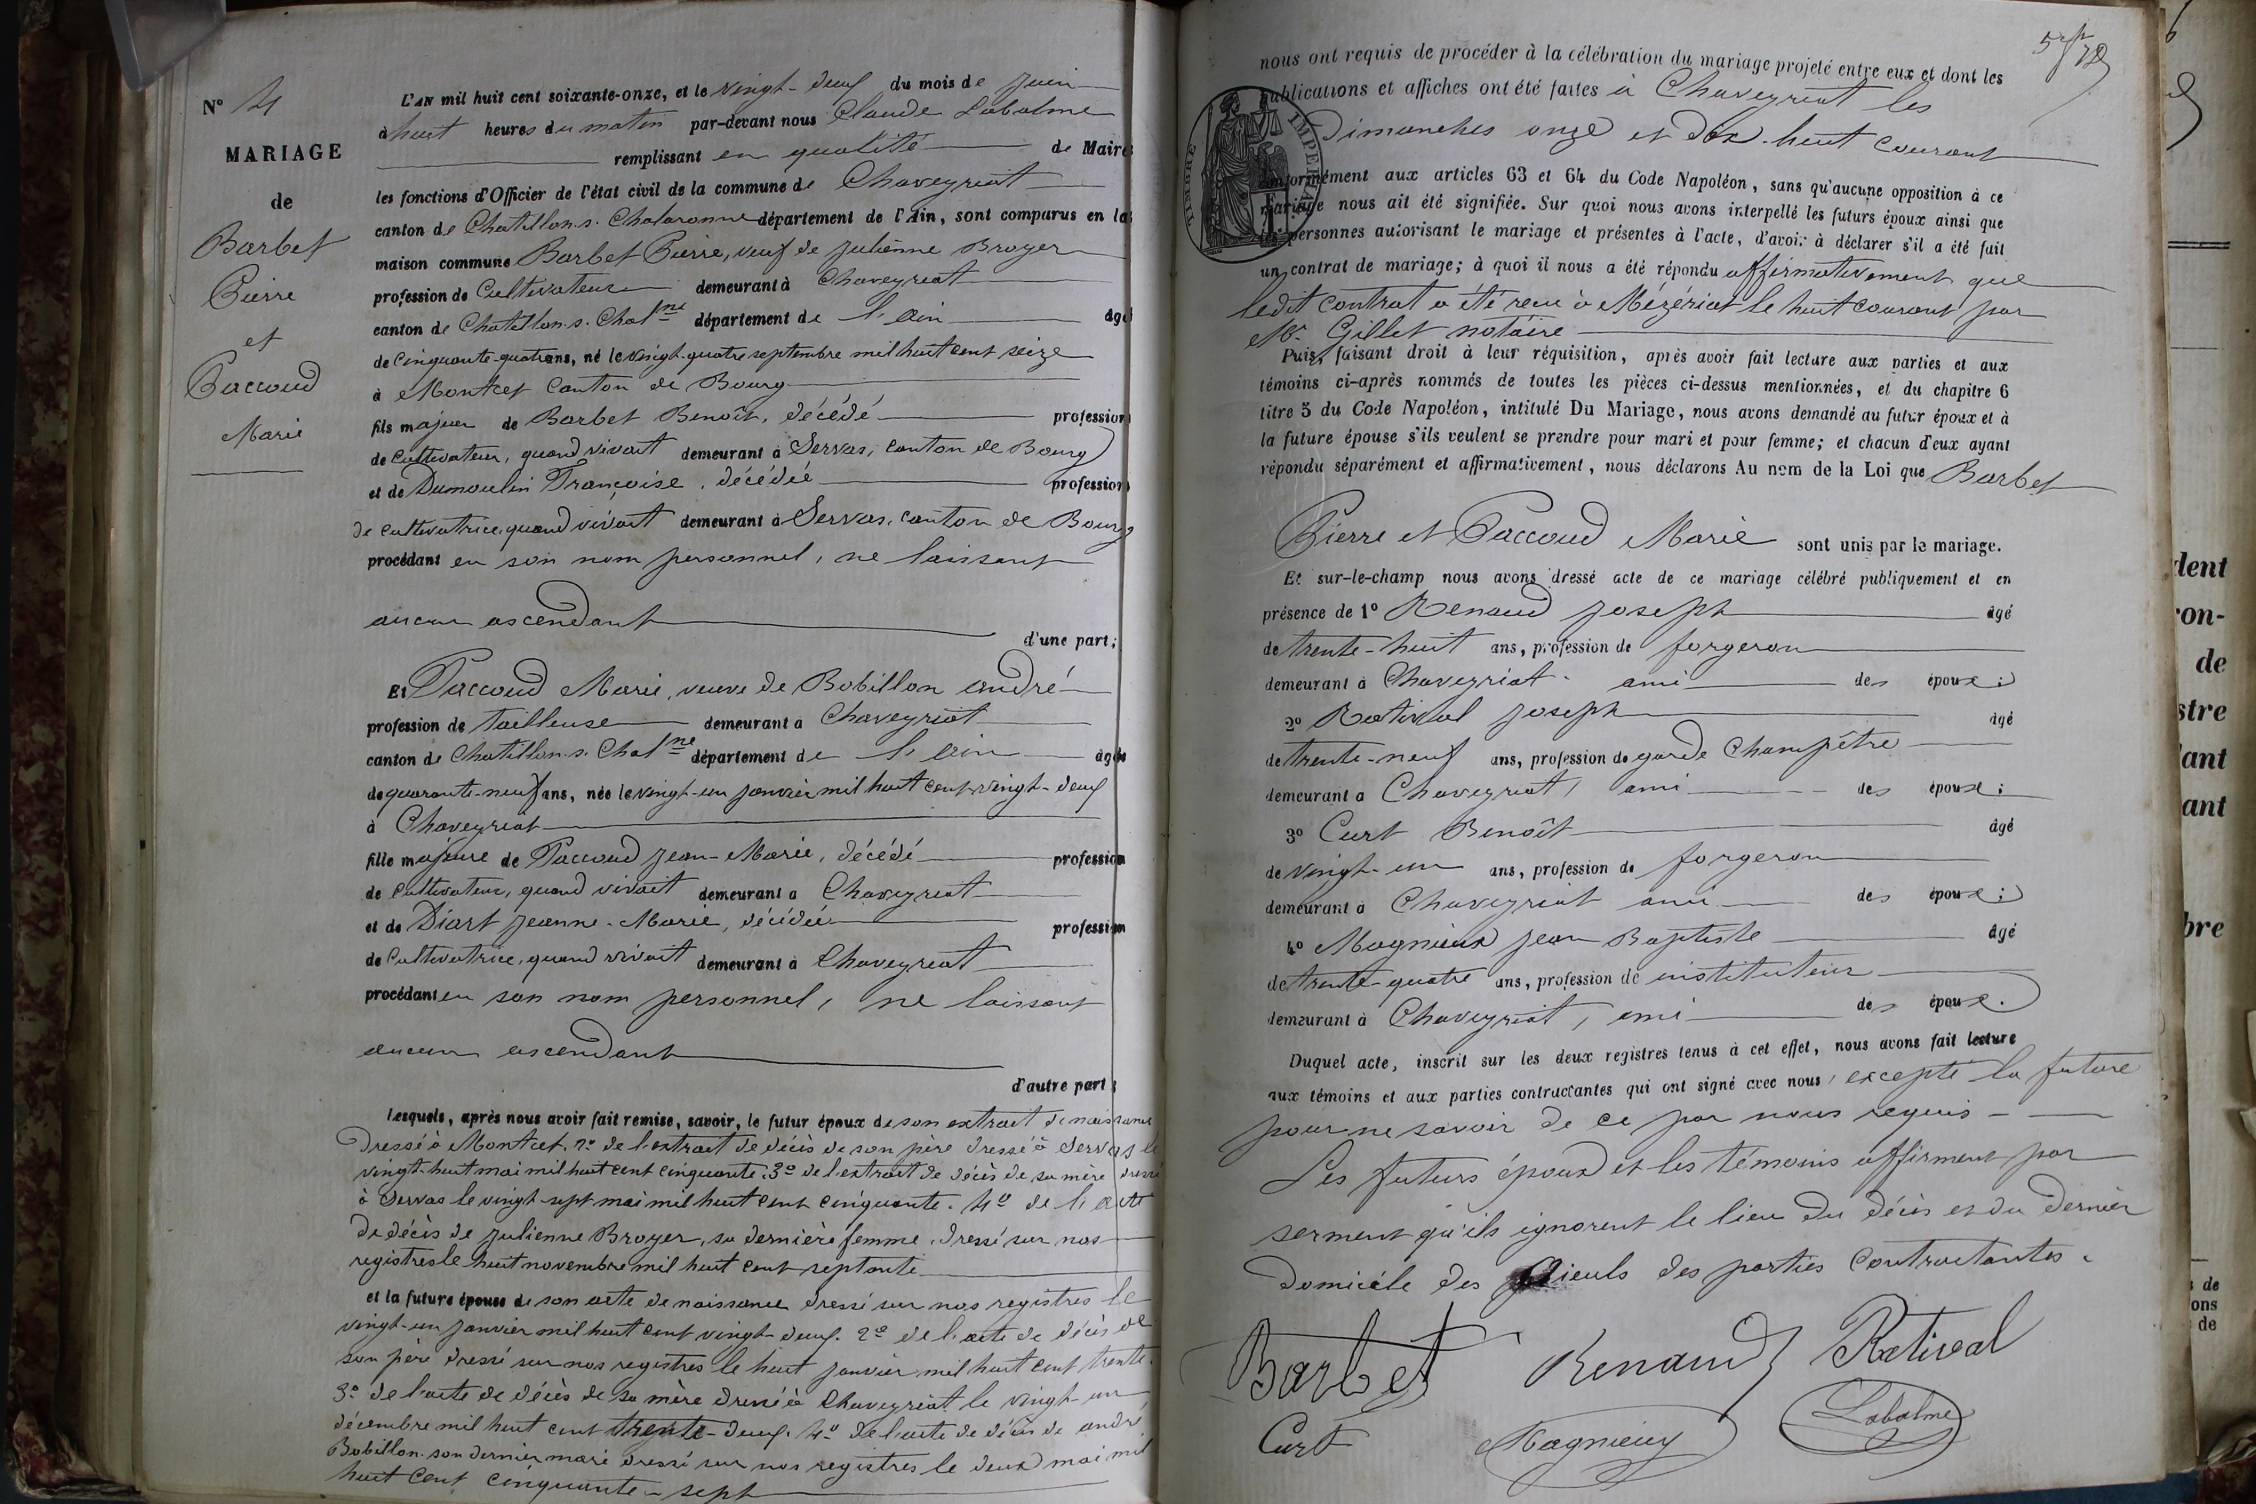 N° 4
MARIAGE
de
Barbet
Pierre
et
Paccoud
Marie
L'AN mil huit cent soixante-onze, et le vingt-deux du mois de juin
à huit heures du matin par-devant nous Claude Labalme
remplissant en qualité de Maire
les fonctions d'Officier de l'état civil de la commune de Chaveyriat
canton de Chatillon-s-Chalaronne département de l'Ain, sont comparus en la
maison commune Barbet Pierre, veuf de Julienne Broyer
profession de Cultivateur demeurant à Chaveyriat
canton de Chatillon-s-Chalne département de l'Ain âgé
de cinquante-quatre ans, né le vingt-quatre septembre mil huit cent seize
à Montcet canton de Bourg
fils majeur de Barbet Benoît, décédé profession
de cultivateur, quand vivait demeurant à Servas, canton de Bourg
et de Dumoulin Françoise, décédée profession
de cultivatrice, quand vivait demeurant à Servas, canton de Bourg
procédant en son nom personnel, ne laissant
aucun ascendant
d'une part;
Et Paccoud Marie, veuve de Bobillon André
profession de tailleuse demeurant à Chaveyriat
canton de Chatillon-s-Chalne département de l'Ain âgée
de quarante-neuf ans, née le vingt-un janvier mil huit cent vingt-deux
à Chaveyriat
fille majeure de Paccoud Jean-Marie, décédé profession
de cultivateur, quand vivait demeurant à Chaveyriat
et de Diart Jeanne-Marie, décédée profession
de Cultivatrice, quand vivait demeurant à Chaveyriat
procédant en son nom personnel, ne laissant
aucun ascendant
d'autre part;
Lesquels, après nous avoir fait remise, savoir, le futur époux de son extrait de naissance
dressé à Montcet. 2° de l'extrait de décès de son père dressé à Servas le
vingt-huit mai mil huit cent cinquante. 3° de l'extrait de décès de sa mère dressé
à Servas le vingt-sept mai mil huit cent cinquante. 4° de l'acte
de décès de Julienne Broyer, sa dernière femme, dressé sur nos
registres le huit novembre mil huit cent septante
et la future épouse de son acte de naissance dressé sur nos registres le
vingt-un janvier mil huit cent vingt-deux. 2° de l'acte de décès de
son père dressé sur nos registres le huit janvier mil huit cent trente.
3° de l'acte de décès de sa mère dressé à Chaveyriat le vingt-un
décembre mil huit cent trente-deux. 4° de l'acte de décès de André
Bobillon son dernier mari dressé sur nos registres le deux mai mil
huit cent cinquante-sept
nous ont requis de procéder à la célébration du mariage projeté entre eux et dont les
publications et affiches ont été faites à Chaveyriat les
Dimanches onze et dix-huit courant
conformément aux articles 63 et 64 du Code Napoléon, sans qu'aucune opposition à ce
mariage nous ait été signifiée. Sur quoi nous avons interpellé les futurs époux ainsi que
les personnes autorisant le mariage et présentes à l'acte, d'avoir à déclarer s'il a été fait
un contrat de mariage; à quoi il nous a été répondu affirmativement que
ledit contrat a été reçu à Mézériat le huit courant par
Mr. Gillet notaire
Puis, faisant droit à leur réquisition, après avoir fait lecture aux parties et aux
témoins ci-après nommés de toutes les pièces ci-dessus mentionnées, et du chapitre 6
titre 5 du Code Napoléon, intitulé Du Mariage, nous avons demandé au futur époux et à
la future épouse s'ils veulent se prendre pour mari et pour femme; et chacun d'eux ayant
répondu séparément et affirmativement, nous déclarons Au nom de la Loi que Barbet
Pierre et Paccoud Marie sont unis par le mariage.
Et sur-le-champ nous avons dressé acte de ce mariage célébré publiquement et en
présence de 1° Renaud Joseph âgé
de trente-huit ans, profession de forgeron
demeurant à Chaveyriat. ami des époux;
2° Rativel Joseph âgé
de trente-neuf ans, profession de garde champêtre
demeurant à Chaveyriat, ami des époux;
3° Curt Benoît âgé
de vingt-un ans, profession de forgeron
demeurant à Chaveyriat ami des époux;
4° Magnieux Jean Baptiste âgé
de trente-quatre ans, profession de instituteur
demeurant à Chaveyriat, ami des époux.
Duquel acte, inscrit sur les deux registres tenus à cet effet, nous avons fait lecture
aux témoins et aux parties contractantes qui ont signé avec nous, excepté la future
pour ne savoir de ce par nous requis
Les futurs époux et les témoins affirment par
serment qu'ils ignorent le lieu du décès et du dernier
domicile des aïeuls des parties contractantes.
Barbet Renaud Rativel
Curt Magnieux Labalme
TIMBRE IMPERIAL
dent
on-
de
stre
ant
ant
bre
s de
ons
de